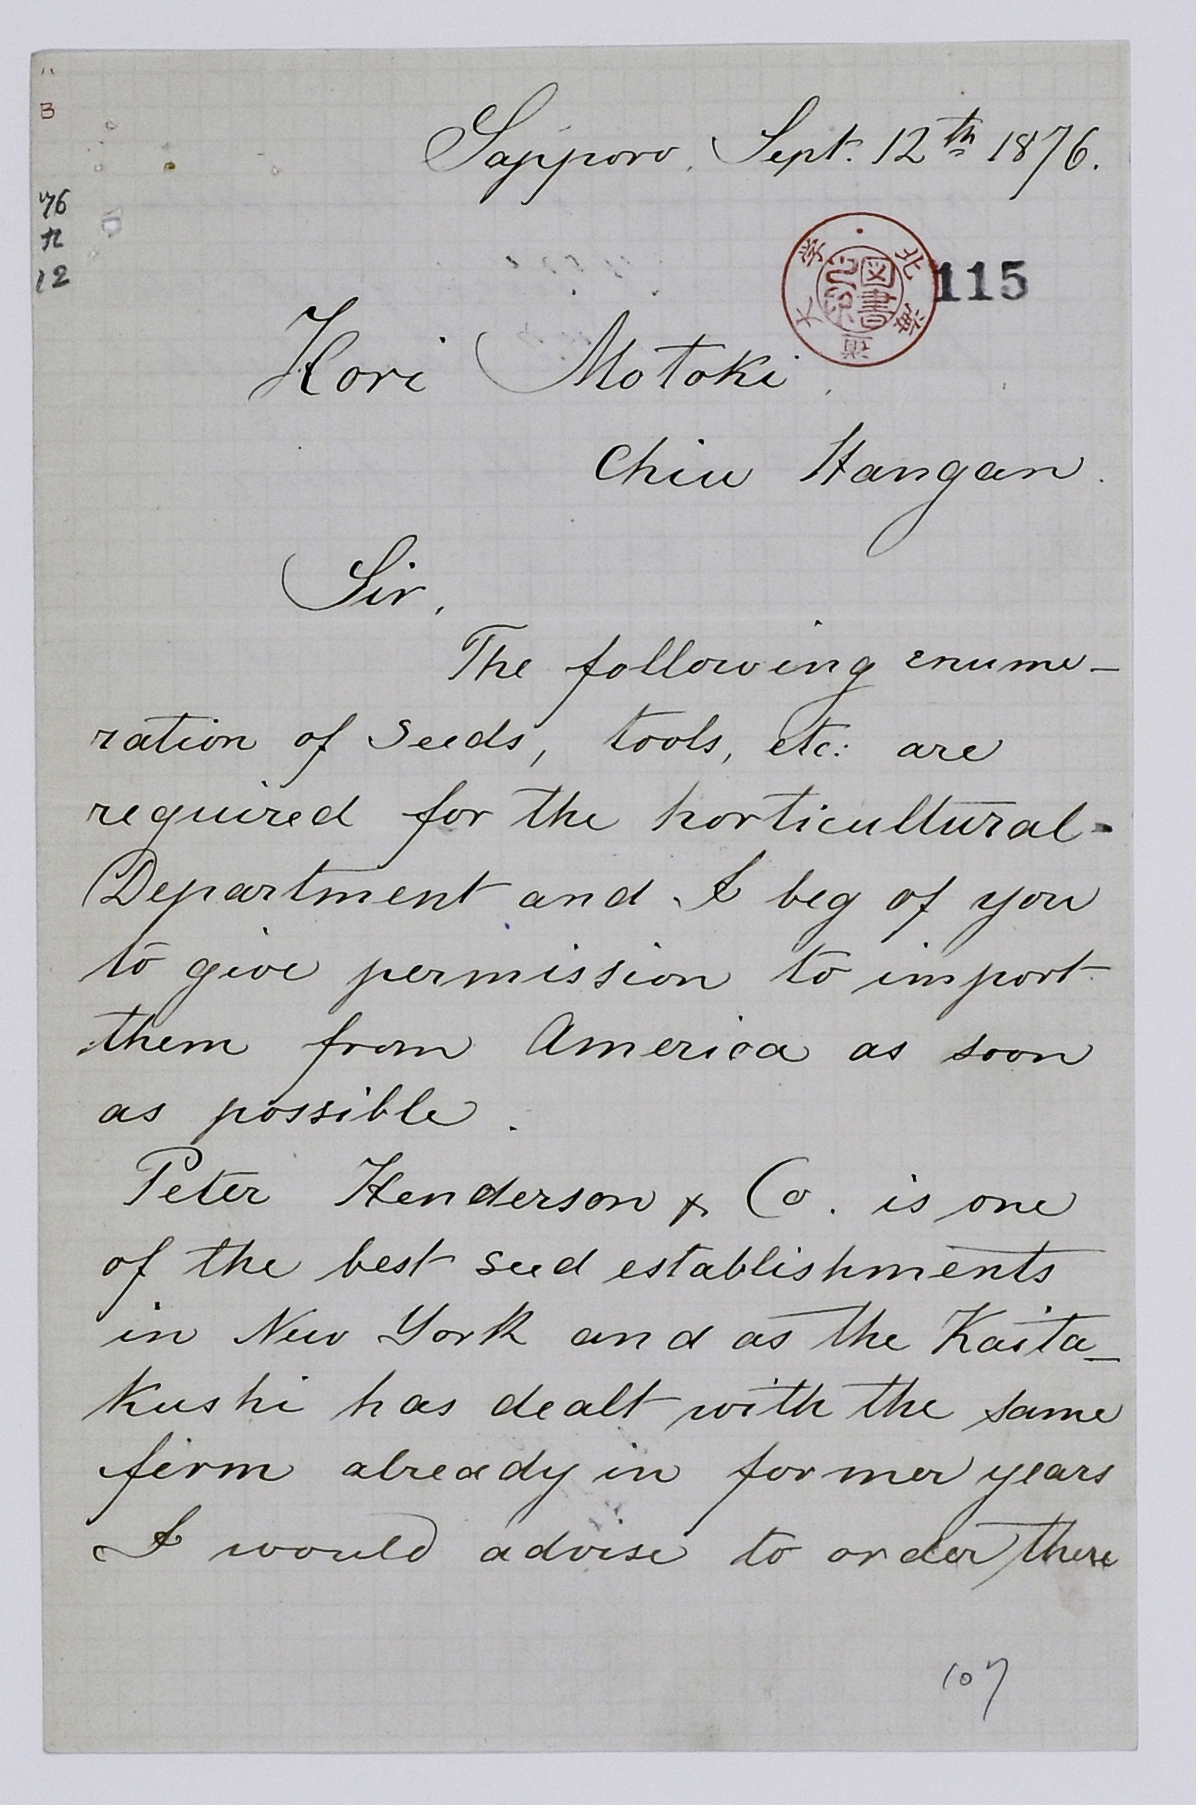 Sapporo. Sept. 12th 1876.
115
北海道大学
図書之印
76
9
12
Hori Motoki
Chiu Hangan.
Sir,
The following enume-
ration of seeds, tools, etc: are
required for the horticultural-
Department and I beg of you
to give permission to import
them from America as soon
as possible.
Peter Henderson & Co. is one
of the best seed establishments
in New York and as the Kaita-
Kushi has dealt with the same
firm already in former years
I would advise to order there
107